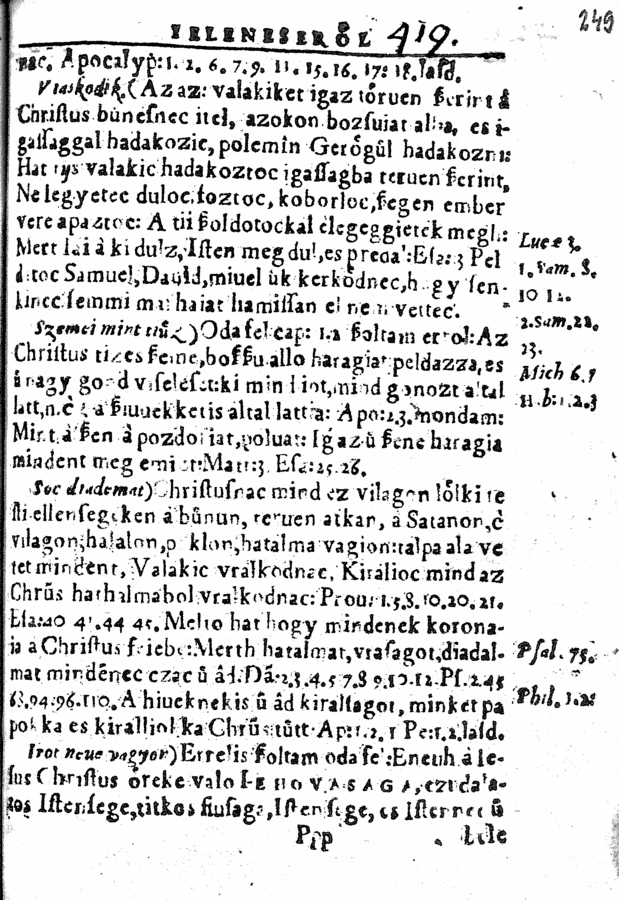 IELENESERŐL 419.
249
nac. Apocalyp: 1. 2. 6. 7. 9. 11. 15. 16. 17: 18. lasd.
(Az az: valakiket igaz tőruen ßerint á
Christus bűnesnec itel, azokon bozsuiat alla, es i-
gassaggal hadakozic, polemin Gerőgűl hadakozni:
Hat ijs valakic hadakoztoc igassagba teruen ßerint,
Ne legyetec duloc, foztoc, koborloc, ßegen ember
vere apaztoc: A tii ßoldotockal elegeggietek megh:
Mert iai á ki dulz, Isten meg dul, es preda: Esa: 3 Pel
datoc Samuel, Dauid, miuel ük kerkődnec, hogy sen-
kinec semmi marhaiat hamissan el nem vettec.
Szemei mint tűz) Oda fel cap: 1.2 ßoltam errol: Az
Christus tizes ßeme, boßßu allo haragiat peldazza, es
á nagy gond viseleset: ki mindent, mind gonozt altal
latt, á hiuekketis által lattia: Apo: 2.3. mondam:
Mint á ßen á pozdoriat, poluat: Igaz ű ßene haragia
mindent meg emizt: Matt: 3. Esa: 25. 26.
Soc diademat) Christusnac mind ez vilagon lőlki te
sti ellensegeken á bűnun, teruen atkan, á Satanon, ĉ
vilagon, halalon, poklon, hatalma vagion: talpa ala ve
tet mindent, Valakic vralkodnac, Kiralioc mind az
Chrūs hathalmabol vralkodnac: Prou: 1. 5. 8. 10. 20. 21.
Esa: 40 41. 44 45. Melto hat hogy mindenek korona-
ia á Christus feiebe: Merth hatalmat, vrasagot, diadal-
mat mindēnec czac ű ád: Dā: 2. 3. 4. 5 7. 8 9. 10. 12. Ps. 2. 45
68. 94: 96. 110. A hiueknekis ű ád kiralsagot, minket pa
pokka es kiralliokka Chrūs tűtt Ap: 1. 2. 1 Pe: 1. 2. lasd.
Irot neue vagyon) Errelis ßoltam oda fel: Eneuh á Ie-
sus Christus őreke valo IEHOVASAGA, ez
tos Istensege, titkos fiusaga, Istensege, es Istennec ű
Ppp
Lele
Luce 3.
1. Sam. 8.
10 12.
2. Sam. 22.
23.
Mich 6. 7
H. b: 1. 2. 3
Psal. 75.
Phil. 1. 2.